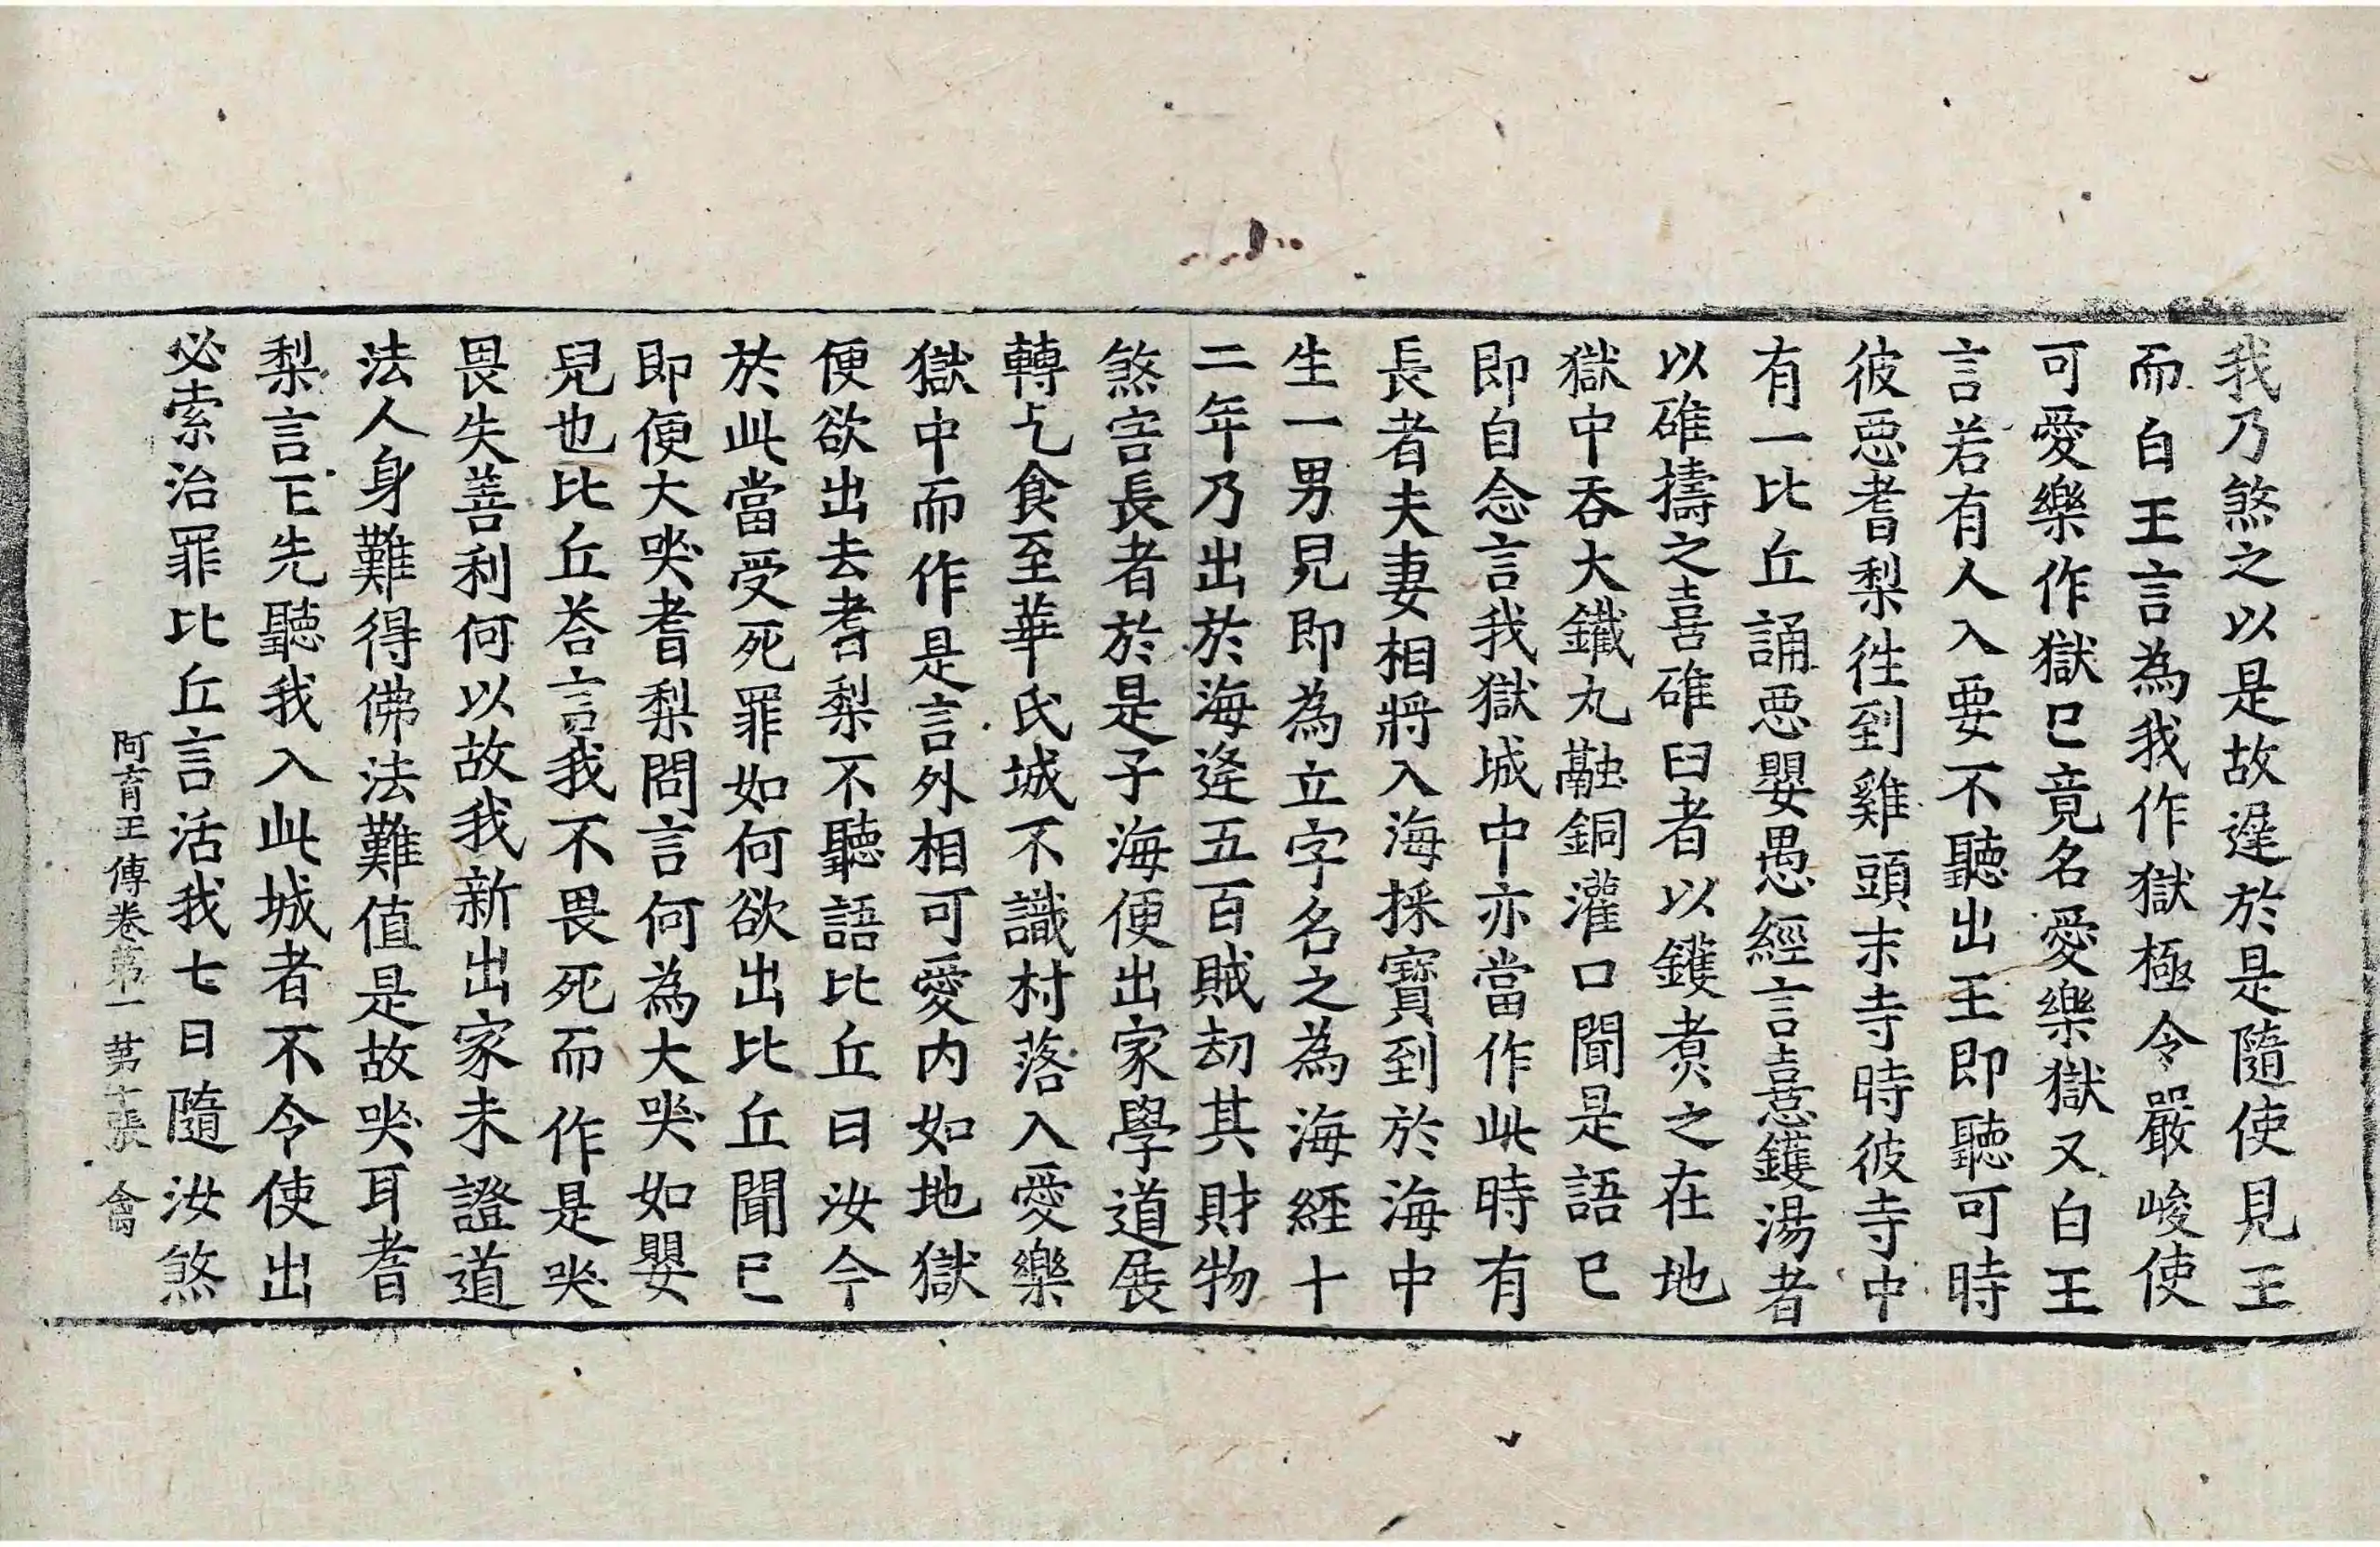 我乃煞之以是故遅於是隨使見王
而白王言為我作獄極令嚴峻使
可愛樂作獄已竟名愛樂獄又白王
言若有人入要不聽出王即聽可時
彼惡耆梨徃到雞頭末寺時彼寺中
有一比丘誦惡嬰愚經言憙鑊湯者
以碓擣之喜碓臼者以鑊煑之在地
獄中吞大鐵丸融銅灌口聞是語已
即自念言我獄城中亦當作此時有
長者夫妻相將入海採寶到於海中
生一男兒即為立字名之為海經十
二年乃出於海逢五百賊劫其財物
煞害長者於是子海便出家學道展
轉乞食至華氏城不識村落入愛樂
獄中而作是言外相可愛內如地獄
便欲出去耆梨不聽語比丘曰汝今
於此當受死罪如何欲出比丘聞已
即便大哭耆梨問言何為大哭如嬰
兒也比丘荅言我不畏死而作是哭
畏失善利何以故我新出家未證道
法人身難得佛法難值是故哭耳耆
梨言王先聽我入此城者不令使出
必索治罪比丘言活我七日隨汝煞
阿育王傳卷第一 第十張 禽